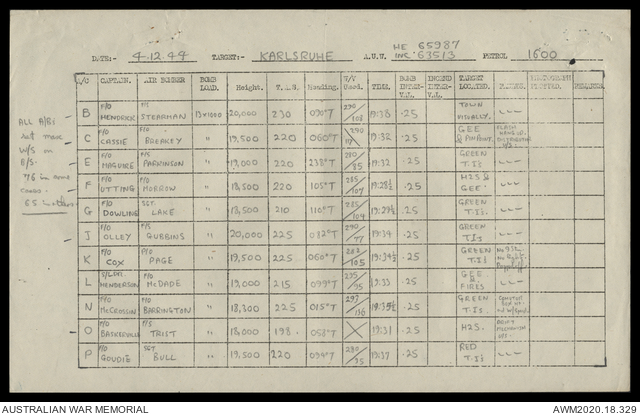 HE 65987
DATE:- 4-12-44 TARGET:- KARLSRUHE A.U.W. INC. 63513 PETROL 1600
A/C CAPTAIN. AIR BOMBER BOMB LOAD. Height. T.A.S. Heading. W/V Used. TIME. BOMB INTER- V.L. INCEND INTER- V.L. TARGET LOCATED. PHOTOGRAPH PLOTTED. REMARKS.
B F/O HENDRICK F/S STEARMAN 13x1000 20,000 230 090°T 290/108 19.38 .25 TOWN VISUALLY.
C F/O CASSIE F/O BREAKEY " 19,500 220 060°T 290 19.32 .25 GEE & PINPOINT.
E F/O MAGUIRE F/S PARKINSON " 19,000 220 238°T 290/85 19.32 .25 GREEN T.I's
F F/O UTTING F/O MORROW " 18,500 220 105°T 285/107 19.28½ .25 H2S & GEE.
G F/O DOWLING SGT. LAKE " 18,500 210 110°T 285/104 19.29½ .25 GREEN T.I's.
J F/O OLLEY F/S GUBBINS " 20,000 225 082°T 290/77 19.34 .25 GREEN T.I's
K F/O COX P/O PAGE " 19,500 225 060°T 105 19.34½ .25 GREEN T.I's
L S/LDR. HENDERSON F/O McDADE " 19,000 215 099°T 295/95 19.33 .25 GEE & FIRES
N F/O McCROSSIN F/O BARRINGTON " 18,300 225 015°T 19.35½ .25 GREEN T.I's.
O F/O BASKERVILLE F/S. TRIST " 18,000 198. 058°T 19.31 .25 H2S. DRIFT MECHANISM U/S.
P F/O GOUDIE SGT. BULL " 19,500 220 094°T 280/95 19.37 .25 RED T.I's
ALL A/B's
set more
W/S on
B/S.
AUSTRALIAN WAR MEMORIAL AWM2020.18.329